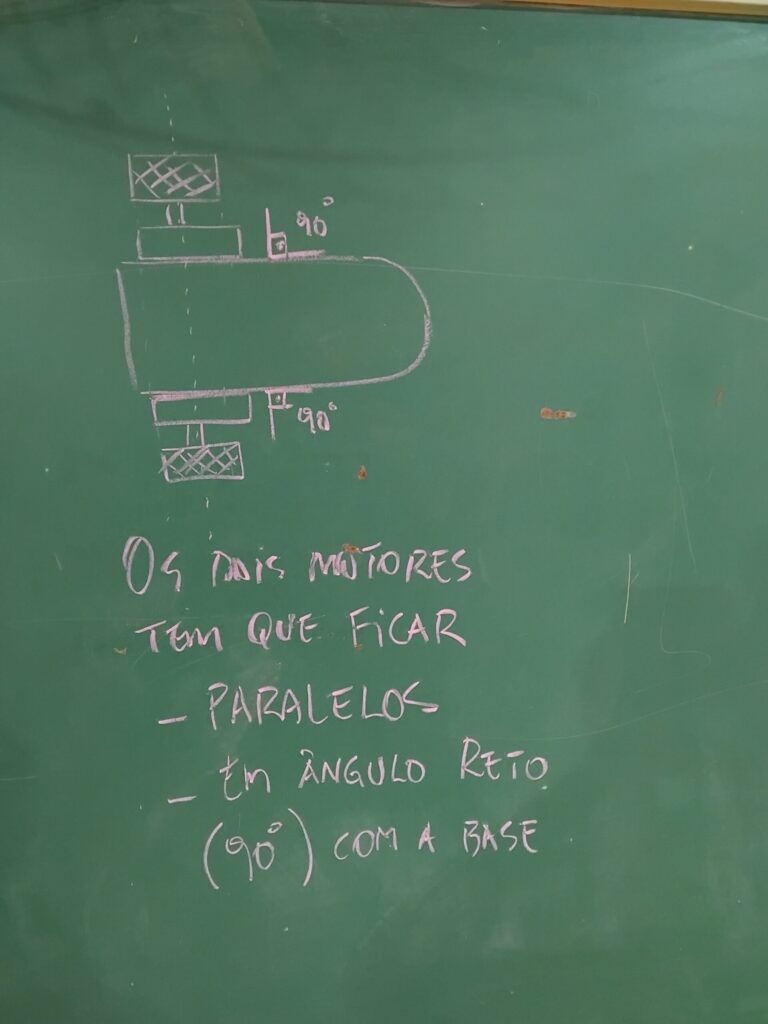 90°
90°
Os dois motores
tem que ficar
- PARALELOS
- Em ÂNGULO RETO
(90°) COM A BASE